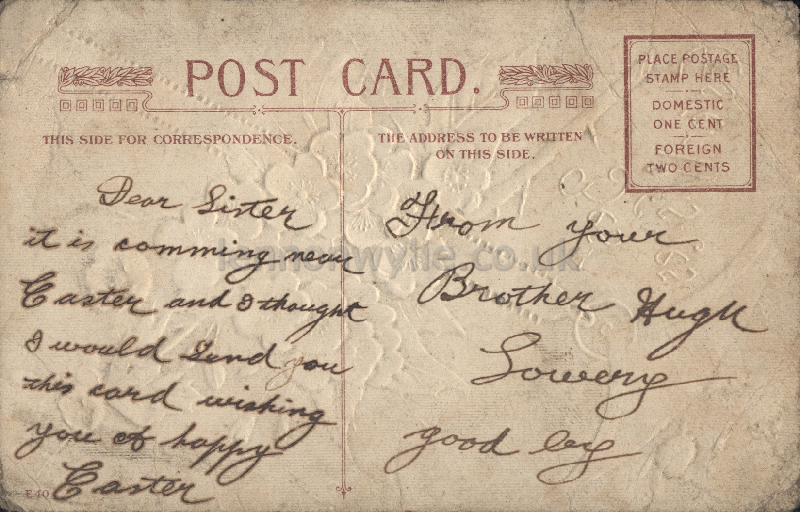 POST CARD.
THIS SIDE FOR CORRESPONDENCE.
THE ADDRESS TO BE WRITTEN
ON THIS SIDE.
PLACE POSTAGE
STAMP HERE
DOMESTIC
ONE CENT
FOREIGN
TWO CENTS
Dear Sister
it is comming near
Easter and I thought
I would Send you
this card wishing
you of happy
Easter
From your
Brother Hugh
Lowery
good by
E40